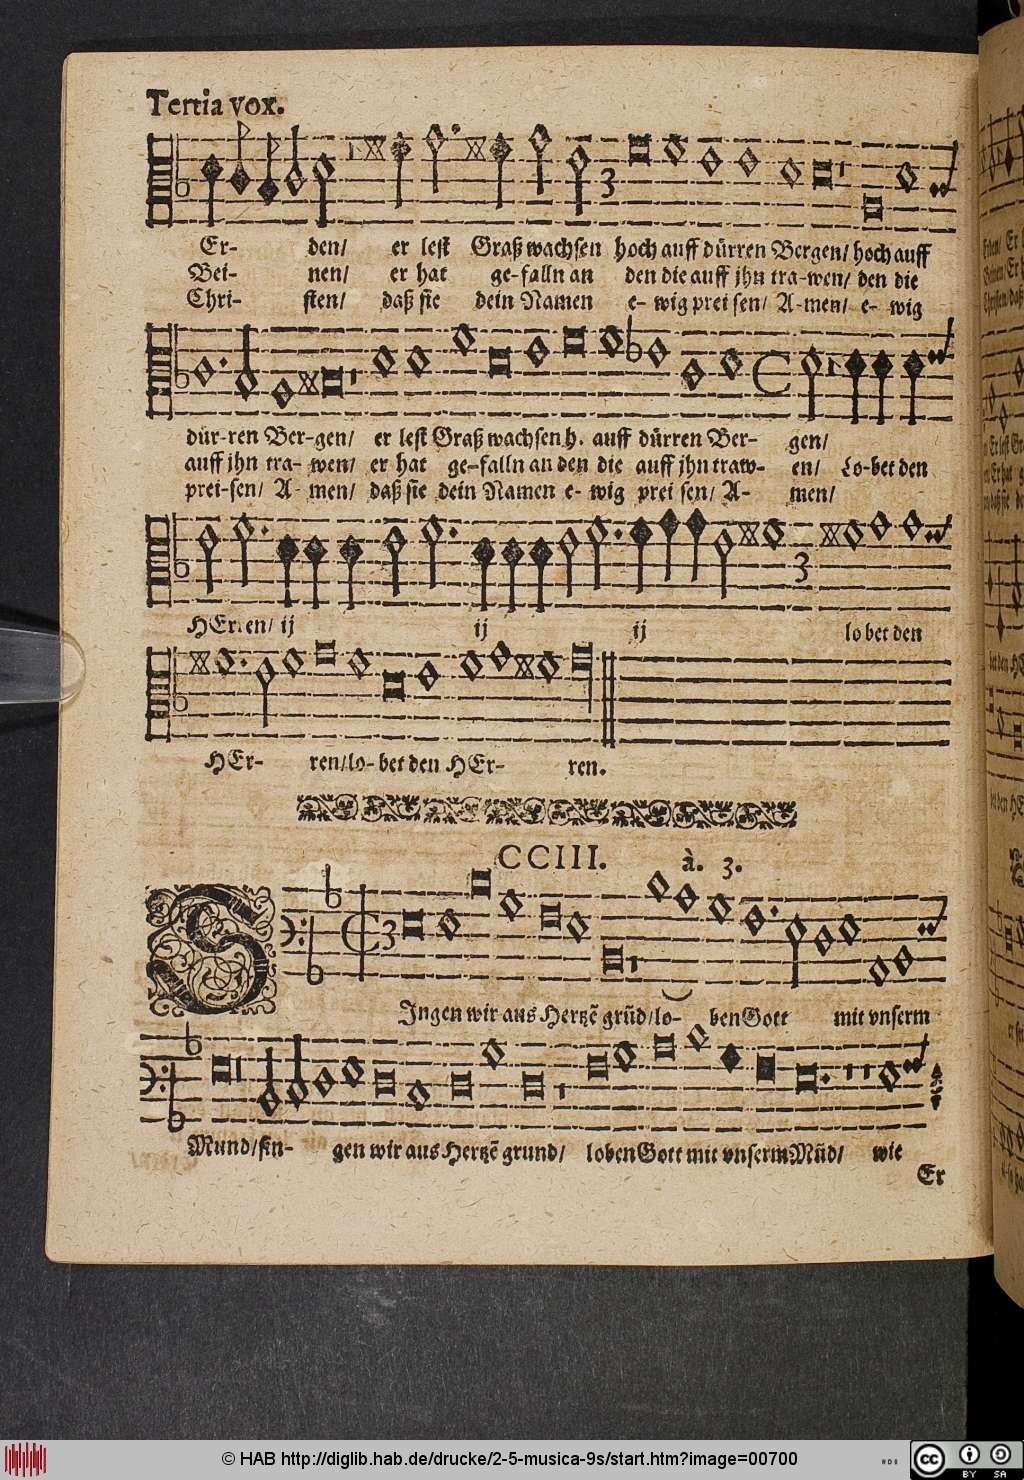 Tertia vox.
Er- den/ er lest Graß wachsen hoch auff dürren Bergen/ hoch auff
Bei- nen/ er hat ge-falln an den die auff jhn tra-wen/ den die
Chri- sten/ daß sie dein Namen e- wig prei sen/ A-men/ e- wig
dür-ren Ber-gen/ er lest Graß wachsen h. auff dürren Ber- gen/
auff jhn tra- wen/ er hat ge-falln an den die auff jhn traw- en/ Lo-bet den
prei-sen/ A- men/ daß sie dein Namen e- wig prei sen/ A- men/
HErren/ ij ij ij lo bet den
HEr- ren/lo-bet den HEr- ren.
CCIII. à. 3.
SIngen wir aus Hertzẽ grũd/lo- ben Gott mit vnserm
Mund/sin- gen wir aus Hertzẽ grund/ loben Gott mit vnserm Mũd/ wie
Er
© HAB http://diglib.hab.de/drucke/2-5-musica-9s/start.htm?image=00700
cc BY SA